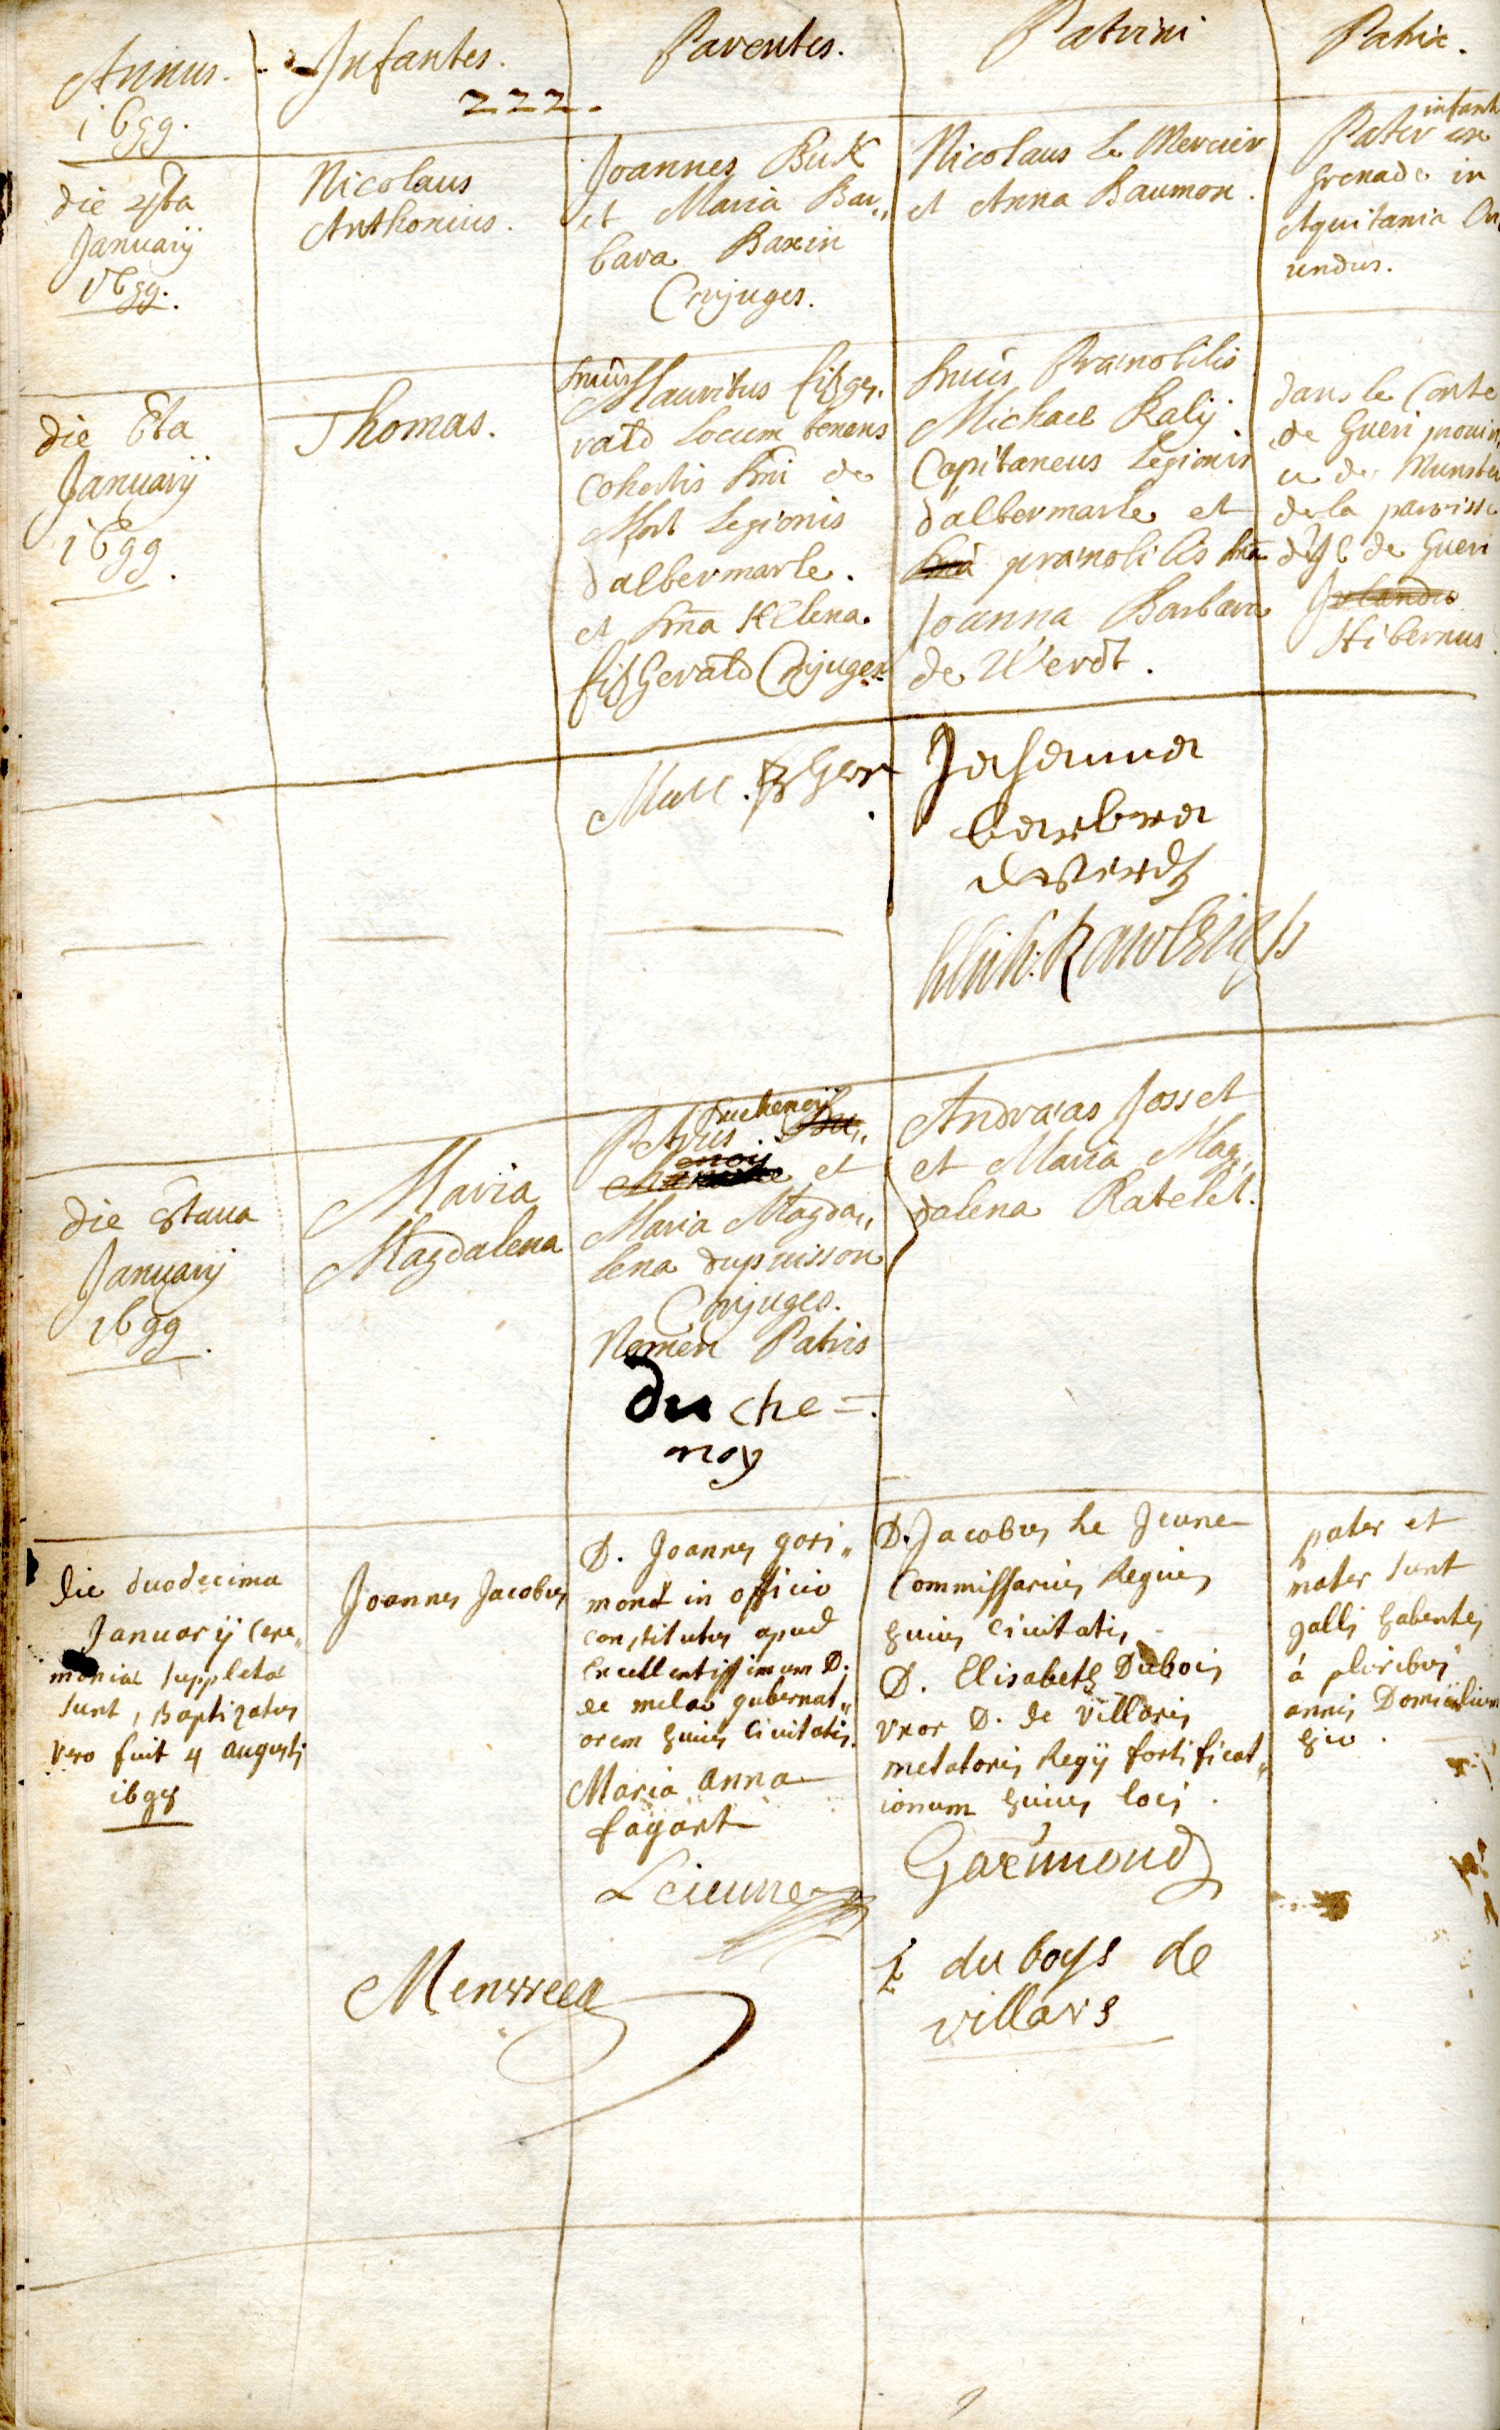 Annus.
1699.
Infantes.
222.
Parentes.
Patrini
Patriæ.
die 4ta
Januarij
1699.
Nicolaus
Anthonius.
Joannes Buk
et Maria Bar„
bara Baxin
Conjuges.
Nicolaus Le Mercier
et Anna Baumon.
infant
Pater ex
Grenade in
Aquitania Ori
undus.
die 6ta
Januarij
1699.
Thomas.
Mauritus fitzge,
rald Locum tenens
Cohortis Dni de
Mort Legionis
dalbermarle.
et Dna Helena.
fitzGerald Conjuges
Prænobilis
Michael Ralij
Capitaneus Legionis
dalbermarle et
prænobilis Dna
Joanna Barbara
de Werdt.
dans le Conte
de Gueri provin,
ce de Munster
de la parroisse
de Gueri
Irlandia
Hibernus.
Mau. fzGer
Johanna
barbra
dewerdt
Mich: Rawleighs
die 8taua
Januarij
1699.
Maria
Magdalena
Duchenoij
Petrus Du„
enoij
et
Maria Magda„
lena dupuisson
Conjuges.
Nomen Patris
du che =.
noy
Andræas Josset
et Maria Mag,
dalena Ratelet.
die duodecima
Januarij Cere„
moniæ suppletæ
sunt, Baptizatus
vero fuit 4 augusti
1698
Joannes Jacobus
D. Joannes gori„
mond in officio
constitutus apud
Excellentissimum D.
de melac gubernat„
orem huius Civitatis.
Maria Anna
fagart
D. Jacobus Le Jeune
Commissarius Regius
huius Civitatis
D. Elisabeth Dubois
vxor D. de Villaris
metatoris Regij fortificat„
ionum huius loci.
pater et
mater sunt
galli habentes
à pluribus
annis Domicilium
hic.
Leieune
Garimond
Menweeg
E du boys de
villars